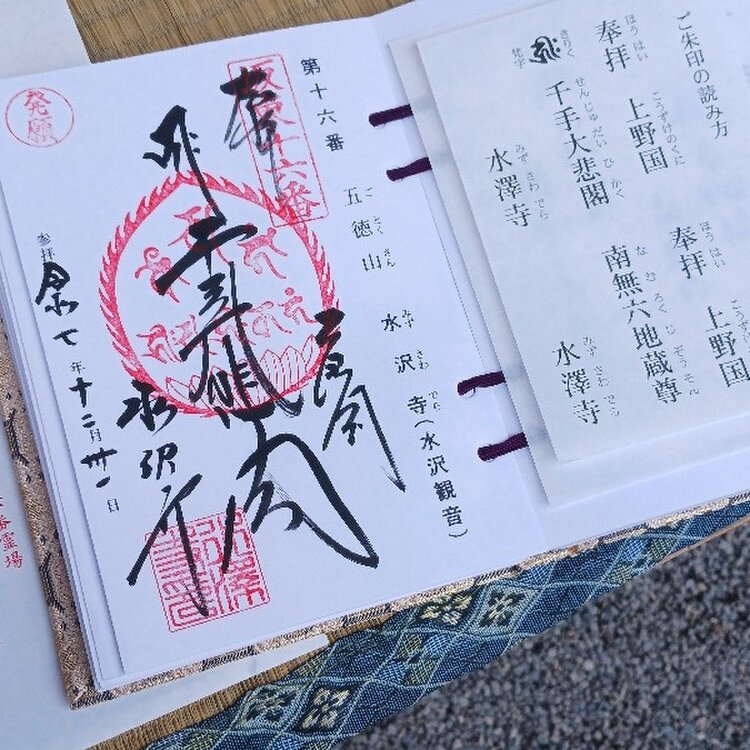 ご朱印の読み方
ほうはい こうずけのくに
奉拝 上野国
きりく せんじゅだいひかく
千手大悲閣
梵字
みずさわでら
水澤寺
ほうはい こうず
奉拝 上野国
なむろくじぞうそん
南無六地蔵尊
みずさわでら
水澤寺
第十六番 五徳山 水沢寺(水沢観音)
ごとくさん みずさわでら
坂東十六番
奉拝
上野国
千手大悲閣
水沢寺
参拝 令和七年十二月卅一日
発願
番霊場